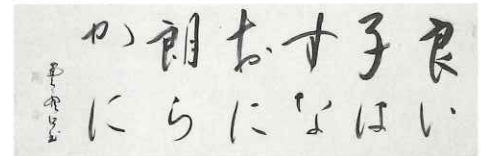 良い
子は
すな
おに
朗ら
かに